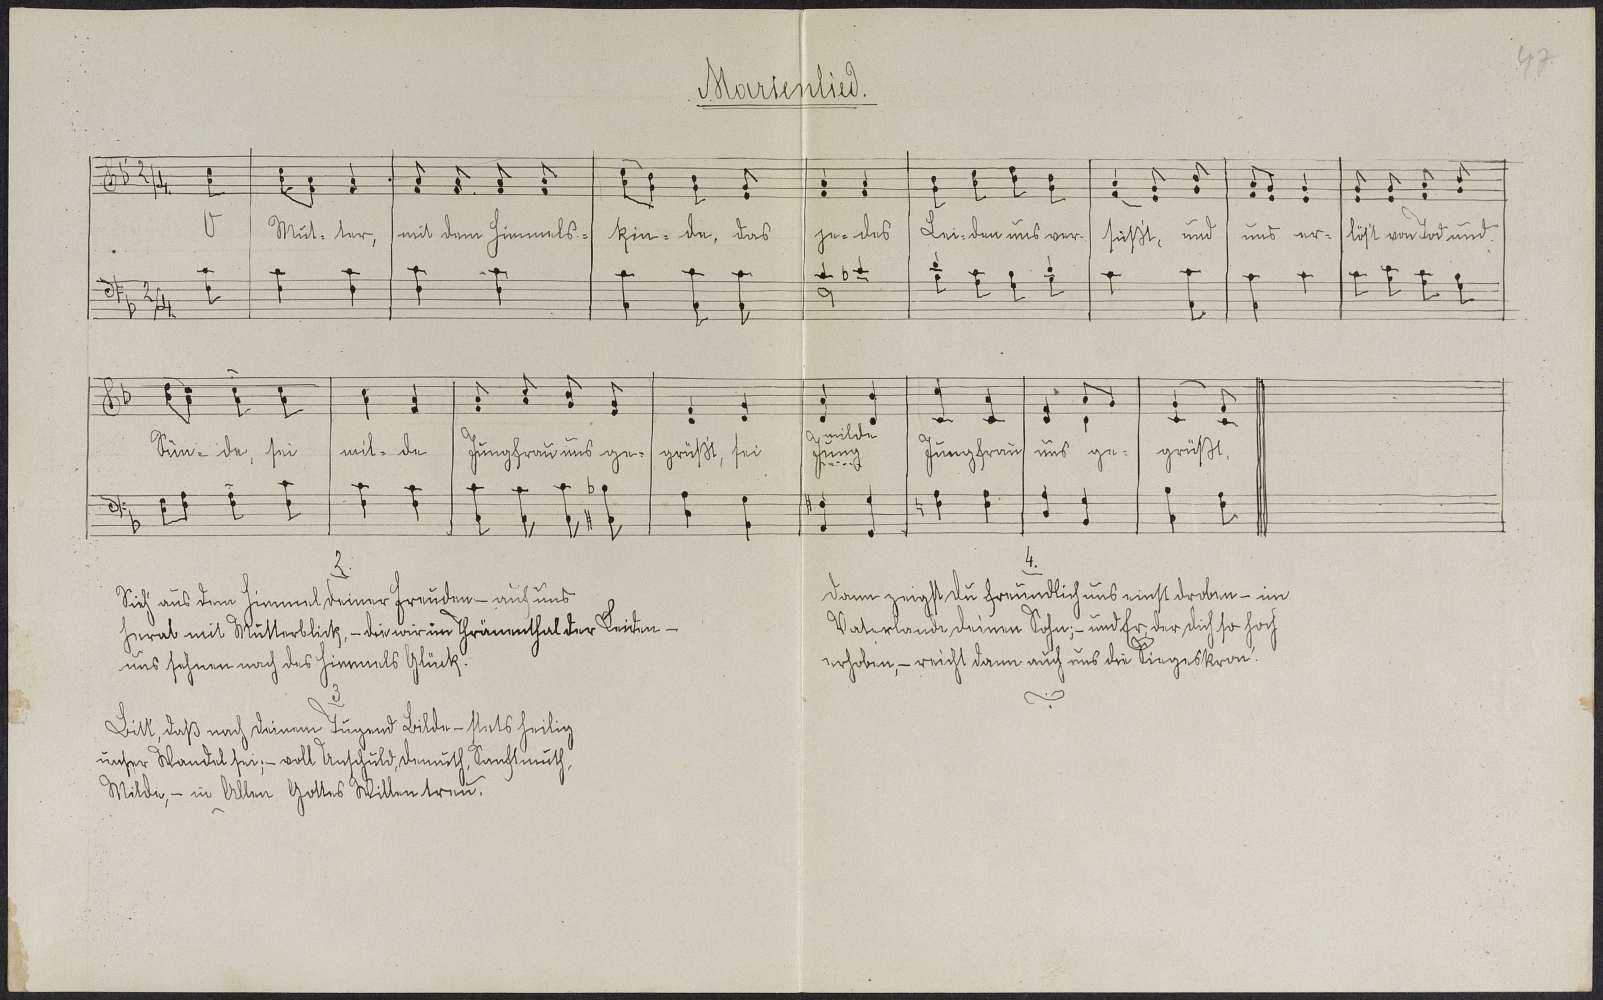 47
Marienlied.
2/4
O Mut- ter, mit dem Himmels- kin- de, das je- des Lei- den uns ver- süßt, und uns er- löst von Tod und
2/4
Sün- de, sei mil- de Jungfrau uns ge- grüßt, sei milde Jung Jungfrau uns ge- grüßt.
2.
Sieh' aus dem Himmel deiner Freuden – auf uns
herab mit Mutterblick, – die wir im Thränenthal der Leiden –
uns sehnen nach des Himmels Glück.
3
Bitt, daß nach deinem Tugend Bilde – stets heilig
unser Wandel sei; – voll Unschuld, Demuth, Sanftmuth,
Milde, – in Allen Gottes Willen treu.
4.
Dann zeigst Du freundlich uns einst droben – im
Vaterlande, deinen Sohn; – und Er, der dich so hoch
erhoben, – reicht dann auch uns die Siegeskron'.